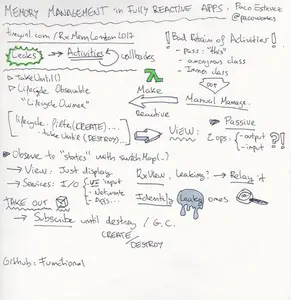 MEMORY MANAGEMENT in FULLY REACTIVE APPS: Paco Estevez
@pacoworks
tinyurl.com/RxMemLondon2017
Leaks → Activities
callbacks
! Bad Retain of Activities!
- pass: "this"
- anonymous class
- Inner class
OOP
▷ TakeUntil()
▷ Lifecycle Observable
"Lifecycle Owner"
Make
Reactive
Manual Manage.
[ lifecycle.filter(CREATE)...
.takeUntil(DESTROY)... ]
Passive
VIEW:
2 ops: - output
- input
?!
Observe to "states" with switchMap(..)
→ View: Just display
→ Services: I/O
- UI input
- Network
- Apis...
RxView, Leaking? → Relay it
Identify Leaky ones
TAKE OUT
→ Subscribe until destroy / G.C.
CREATE/
DESTROY
Github: Functional